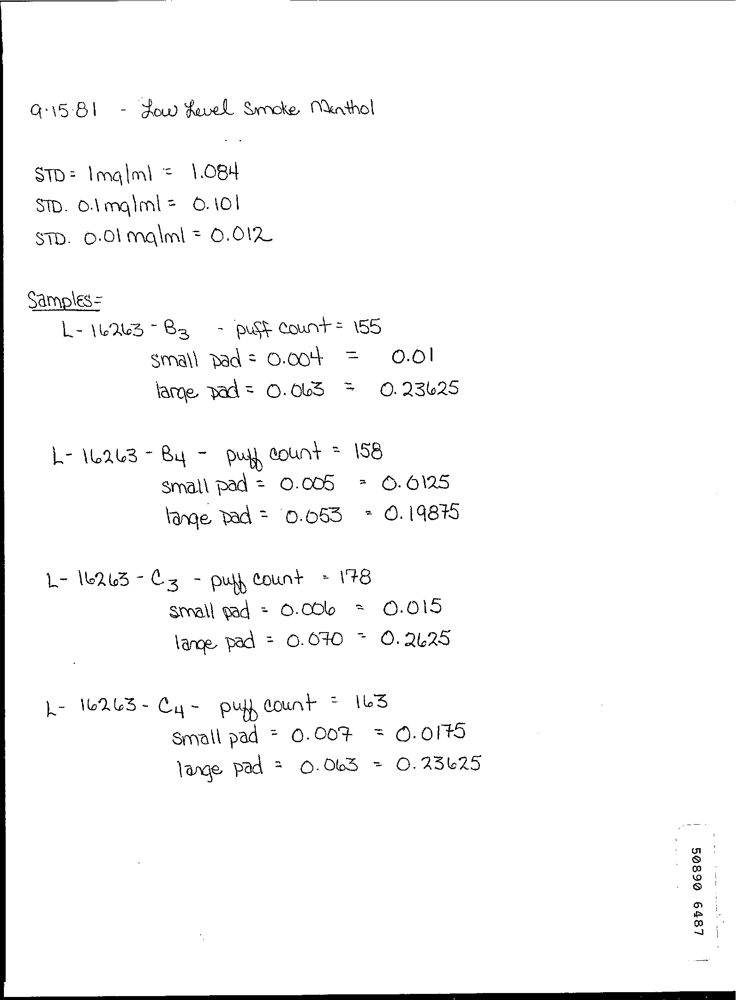 9·15·81 - Low Level Smoke Menthol
STD = 1mg/ml = 1.084
STD. 0.1mg/ml = 0.101
STD. 0.01 mg/ml = 0.012
Samples=
L-16263-B3 - puff count = 155
small pad = 0.004 = 0.01
large pad = 0.063 = 0.23625
L-16263-B4 - puff count = 158
small pad = 0.005 = 0.0125
large pad = 0.053 = 0.19875
L-16263-C3 - puff count = 178
small pad = 0.006 = 0.015
large pad = 0.070 = 0.2625
L-16263-C4 - puff count = 163
small pad = 0.007 = 0.0175
large pad = 0.063 = 0.23625
50890 6487